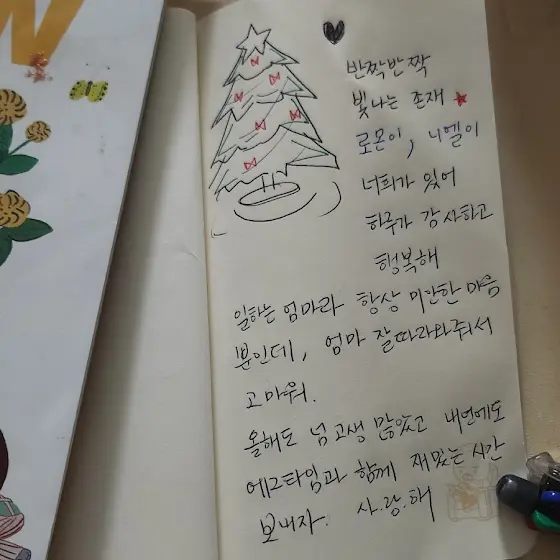 반짝반짝
빛나는 존재
로몬이, 니엘이
너희가 있어
하루가 감사하고
행복해
일하는 엄마라 항상 미안한 마음
뿐인데, 엄마 잘따라와줘서
고마워.
올해도 넘 고생 많았고 내년에도
에그타임과 함께 재밌는 시간
보내자. 사.랑.해